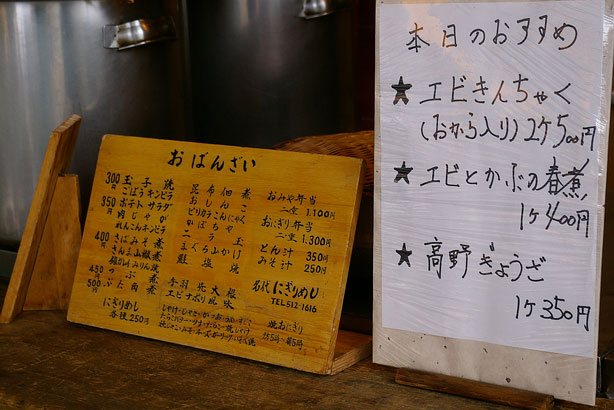 おばんざい
300円 玉子焼
ごぼうキンピラ
350円 ポテトサラダ
肉じゃが
れんこんキンピラ
400円 さばみそ煮
さんま山椒煮
銀ガレイみりん焼
450円 つぶ煮
500円 ぶた角煮
にぎりめし
各種250円
昆布佃煮
おしんこ
ピリカラこんにゃく
かぼちゃ
ニラ玉
まぐらふかけ
鮭塩焼
手羽先大根
エビナポリ風味
おみや弁当
二堂 1.100円
おにぎり弁当
二堂 1.300円
とん汁 350円
みそ汁 250円
名代 にぎりめし
TEL512-1616
焼おにぎり
本日のおすすめ
★エビきんちゃく
(おから入り)2ケ500円
★エビとかぶの春煮
1ケ400円
★高野ぎょうざ
1ケ350円